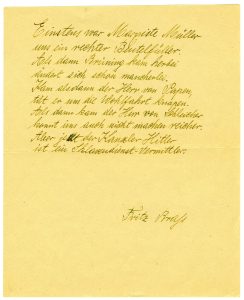 Einstens war Marxiste Müller
uns ein rechter Beutelfüller.
Als dann Brüning kam herbei
ändert sich schon mancherlei.
Kam alsdann der Herr von Papen,
tät er um die Wohlfahrt knapen.
Als dann kam der Herr von Schleicher
konnt uns auch nicht machen reicher.
Aber jetzt der Kanzler Hitler
ist ein Vermittler.
Fritz